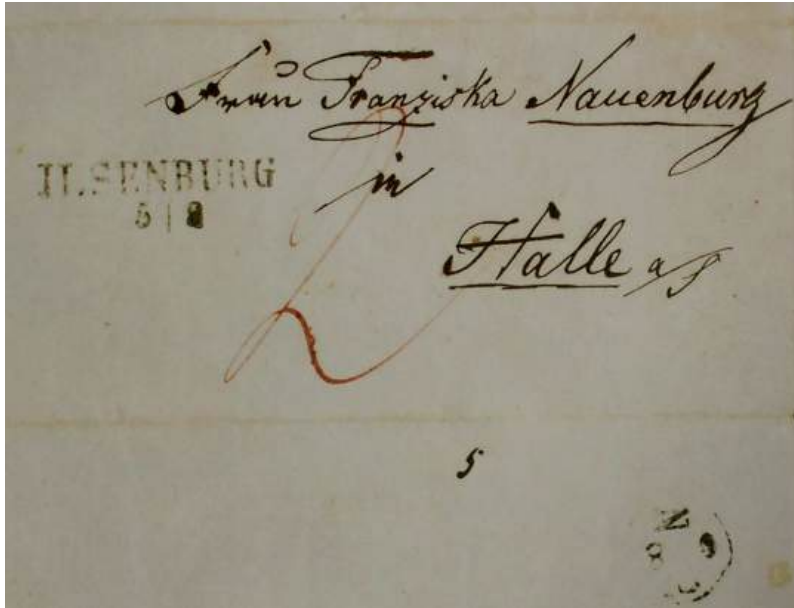 Frau Franziska Nauenburg
ILSENBURG
in
5 | 8
Halle a/S
2
5
N
8